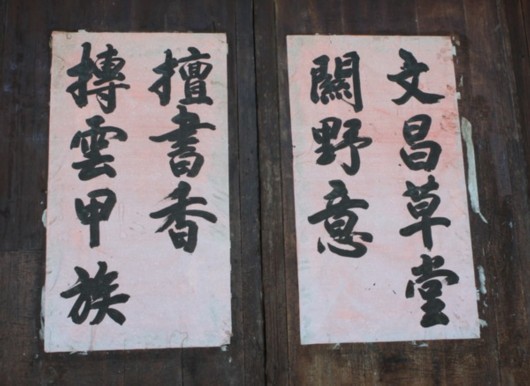 文昌草堂
關野意
摶雲甲族
擅書香